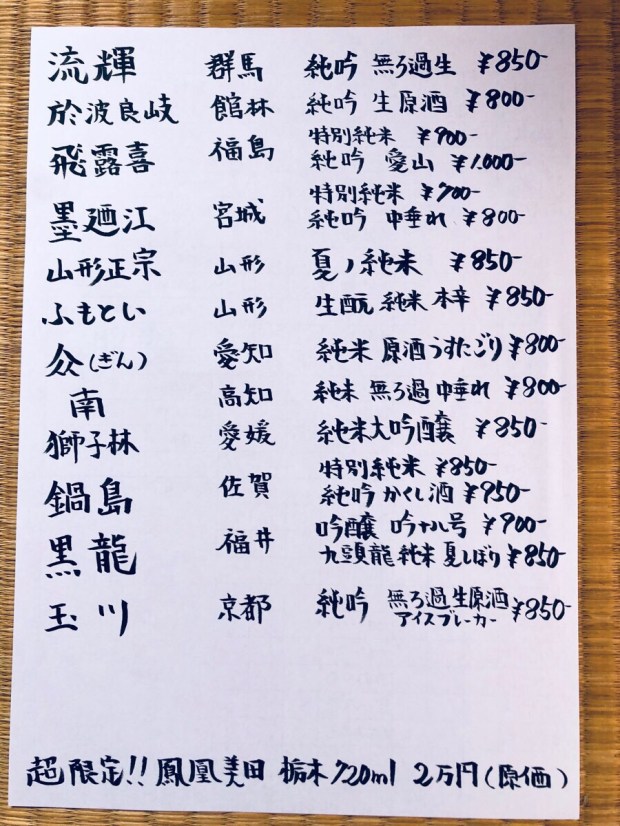 流輝 群馬 純吟 無ろ過生 ¥850-
於波良岐 館林 純吟 生原酒 ¥800-
飛露喜 福島 特別純米 ¥900-
純吟 愛山 ¥1.000-
墨廼江 宮城 特別純米 ¥700-
純吟 中垂れ ¥800-
山形正宗 山形 夏ノ純米 ¥850-
ふもとい 山形 生酛 純米 本辛 ¥850-
(ぎん) 愛知 純米 原酒 うすにごり ¥800-
南 高知 純米 無ろ過 中垂れ ¥800-
獅子林 愛媛 純米大吟醸 ¥850-
鍋島 佐賀 特別純米 ¥850-
純吟 かくし酒 ¥950-
黒龍 福井 吟醸 吟ヶ号 ¥900-
九頭龍 純米 夏しぼり ¥850-
玉川 京都 純吟 無ろ過生原酒 ¥850-
アイスブレーカー
超限定!! 鳳凰美田 栃木 720ml 2万円(原価)